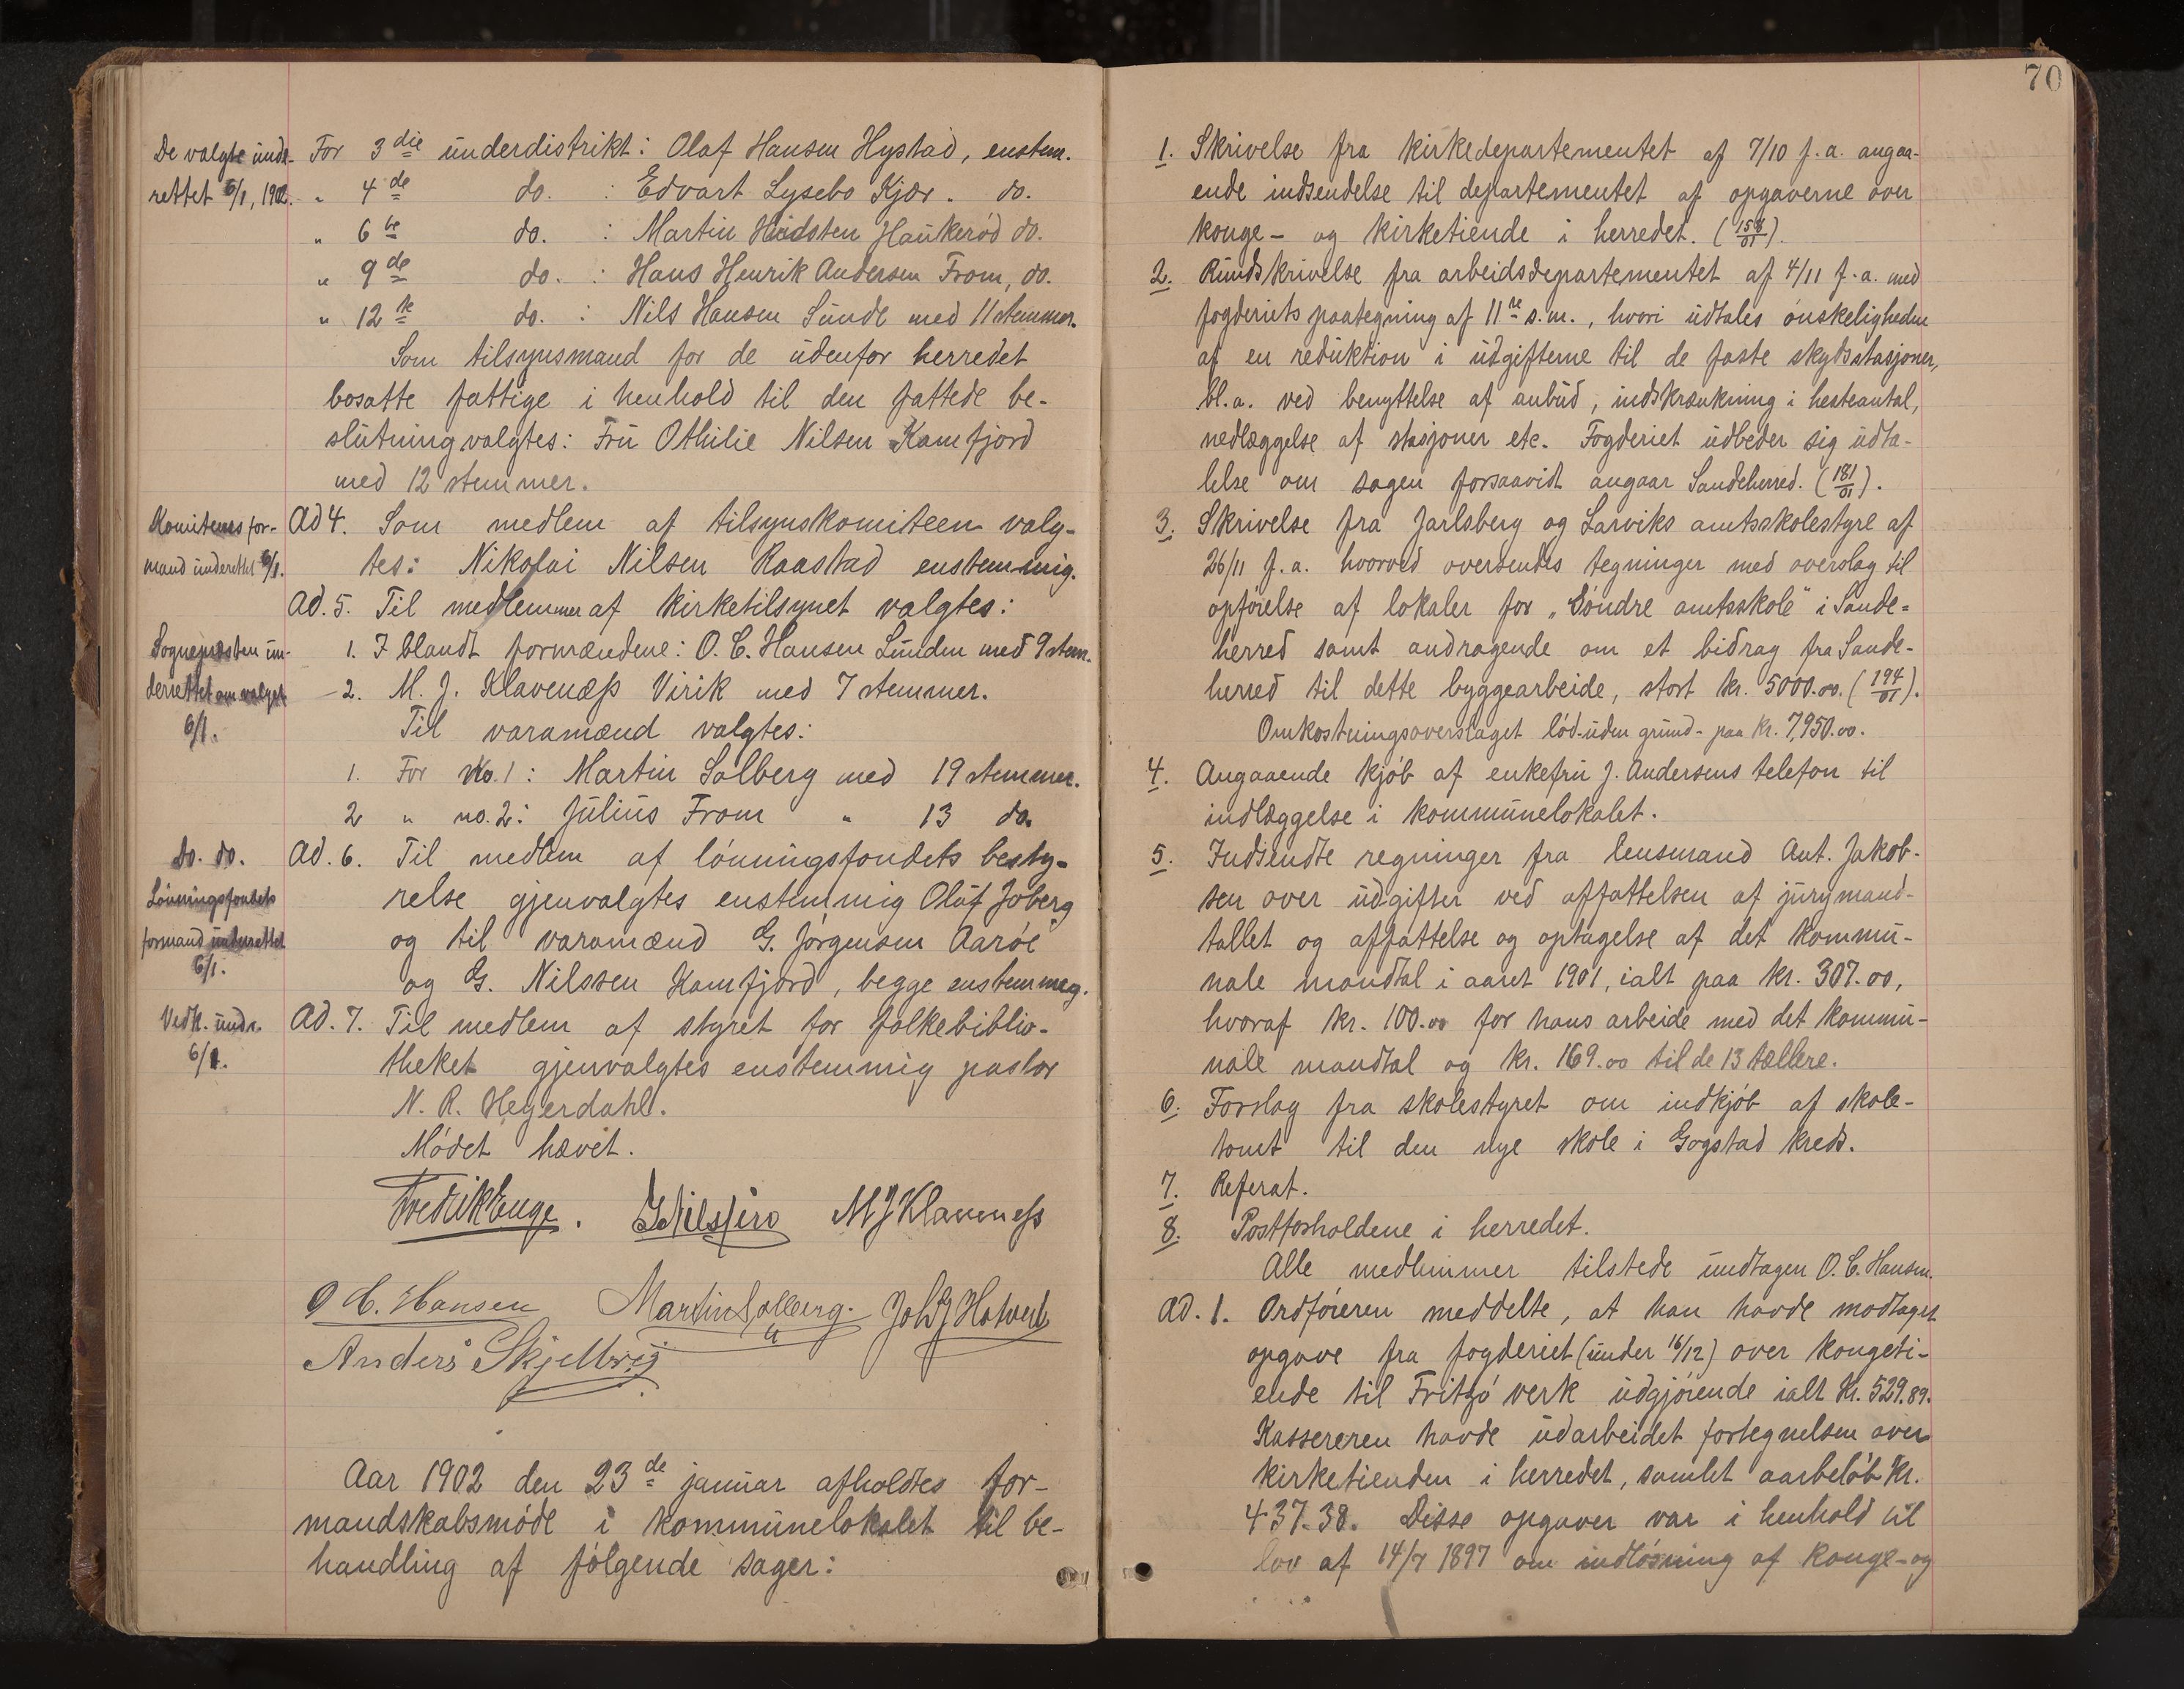 De valgte unde-
rettet 6/1, 1902.
For 3die underdistrikt: Olaf Hansen Hystad, enstem.
" 4de do. : Edvart Lysebo Kjær. do.
" 6te do. : Martin Hidsten Haukerød do.
" 9de do. : Hans Henrik Andersen From, do.
" 12te do. : Nils Hansen Sunde med 11 stemmer.
Som tilsynsmand for de udenfor herredet
bosatte fattige i henhold til den fattede be-
slutning valgtes: Fru Othilie Nilsen Kamfjord
med 12 stemmer.
Komiteens for-
mand underettet 6/1.
Ad 4. Som medlem af tilsynskomiteen valg-
tes: Nikolai Nilsen Raastad enstemmig.
Ad. 5. Til medlemmer af kirketilsynet valgtes:
Sognepresten un-
derrettet om valget
6/1.
1. I blandt formændene: O. C. Hansen Lunden med 9 stem.
2. M. J. Klavenæss Virik med 7 stemmer.
Til varamænd valgtes:
1. For No. 1: Martin Solberg med 19 stemmer.
2 " no. 2: Julius From " 13 do.
do. do.
Lønningsfondets
formand underrettet
6/1.
Ad. 6. Til medlem af lønningsfondets besty-
relse gjenvalgtes enstemmig Oluf Joberg
og til varamænd G. Jørgensen Aarøe
og G. Nilssen Kamfjord, begge enstemmig.
Vedk. undr.
6/1.
Ad. 7. Til medlem af styret for folkebiblio-
theket gjenvalgtes enstemmig pastor
N. R. Hegerdahl.
Mødet hævet.
Fredrik Enge. G Nilssen M J Klaveness
O C. Hansen Martin Solberg. Joh J Hotvedt
Anders Skjelbreg
Aar 1902 den 23de januar afholdtes for-
mandskabsmøde i kommunelokalet til be-
handling af følgende sager:
70
1. Skrivelse fra kirkedepartementet af 7/10 f. a. angaa-
ende indsendelse til departementet af opgaverne over
konge- og kirketiende i herredet. (158/01).
2. Rundskrivelse fra arbeidsdepartementet af 4/11 f. a. med
fogderiets paategning af 11te s. m., hvori udtales ønskeligheden
af en reduktion i udgifterne til de faste skydsstasjoner,
bl. a. ved benyttelse af anbud, indskrænkning i hesteantal,
nedlæggelse af stasjoner etc. Fogderiet udbeder sig udta-
lelse om sagen forsaavidt angaar Sandeherred. (181/01).
3. Skrivelse fra Jarlsberg og Larviks amtsskolestyre af
26/11 f. a. hvorved oversendes tegninger med overslag til
opførelse af lokaler for „Søndre amtsskole" i Sande-
herred samt andragende om et bidrag fra Sande-
herred til dette byggearbeide, stort kr. 5000.00. (194/01).
Omkostningsoverslaget lød - uden grund - paa kr. 7,950.00.
4. Angaaende kjøb af enkefru J. Andersens telefon til
indlæggelse i kommunelokalet.
5. Indsendte regninger fra lensmand Ant. Jakob-
sen over udgifter ved affattelsen af jurymand-
tallet og affattelse og optagelse af det kommu-
nale mandtal i aaret 1901, ialt paa kr. 307.00,
hvoraf kr. 100.00 for hans arbeide med det kommu-
nale mandtal og kr. 169.00 til de 13 tællere.
6. Forslag fra skolestyret om indkjøb af skole-
tomt til den nye skole i Gogstad kreds.
7. Referat.
8. Postforholdene i herredet.
Alle medlemmer tilstede undtagen O. C. Hansen.
Ad. 1. Ordføreren meddelte, at han havde modtaget
opgave fra fogderiet (under 16/12) over kongeti-
ende til Fritzø verk udgjørende ialt Kr. 529.89.
Kassereren havde udarbeidet fortegnelsen over
kirketienden i herredet, samlet aarbeløb Kr.
437.38. Disse opgaver var i henhold til
lov af 14/7 1897 om indløsning af konge- og